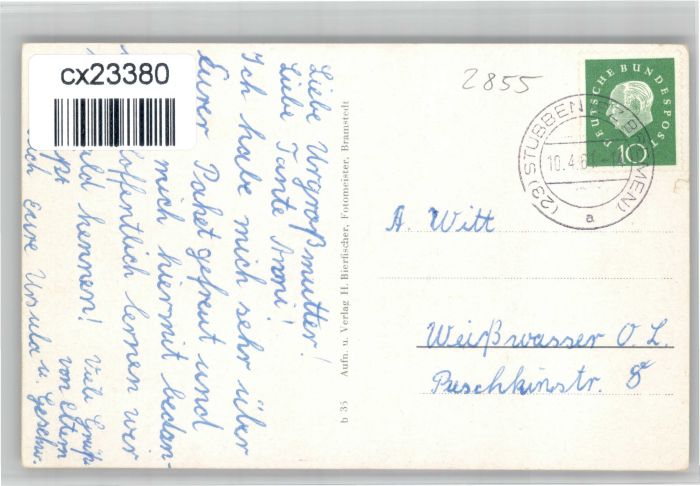 cx23380
Liebe Urgroßmutter!
Liebe Tante Anni!
Ich habe mich sehr über
Eurer Paket gefreut und
mich hiermit bedan-
hoffentlich lernen wir
bald kennen! Viele Grüße
von Eltern
Eure Ursula u. Geschw.
b 35 Aufn. u. Verlag H. Bierfischer, Fotomeister, Bramstedt
2855
DEUTSCHE BUNDESPOST
10
(23) STUBBEN (BZ BREMEN)
10.4.61
a
A. Witt
Weißwasser O. L.
Puschkinstr. 8